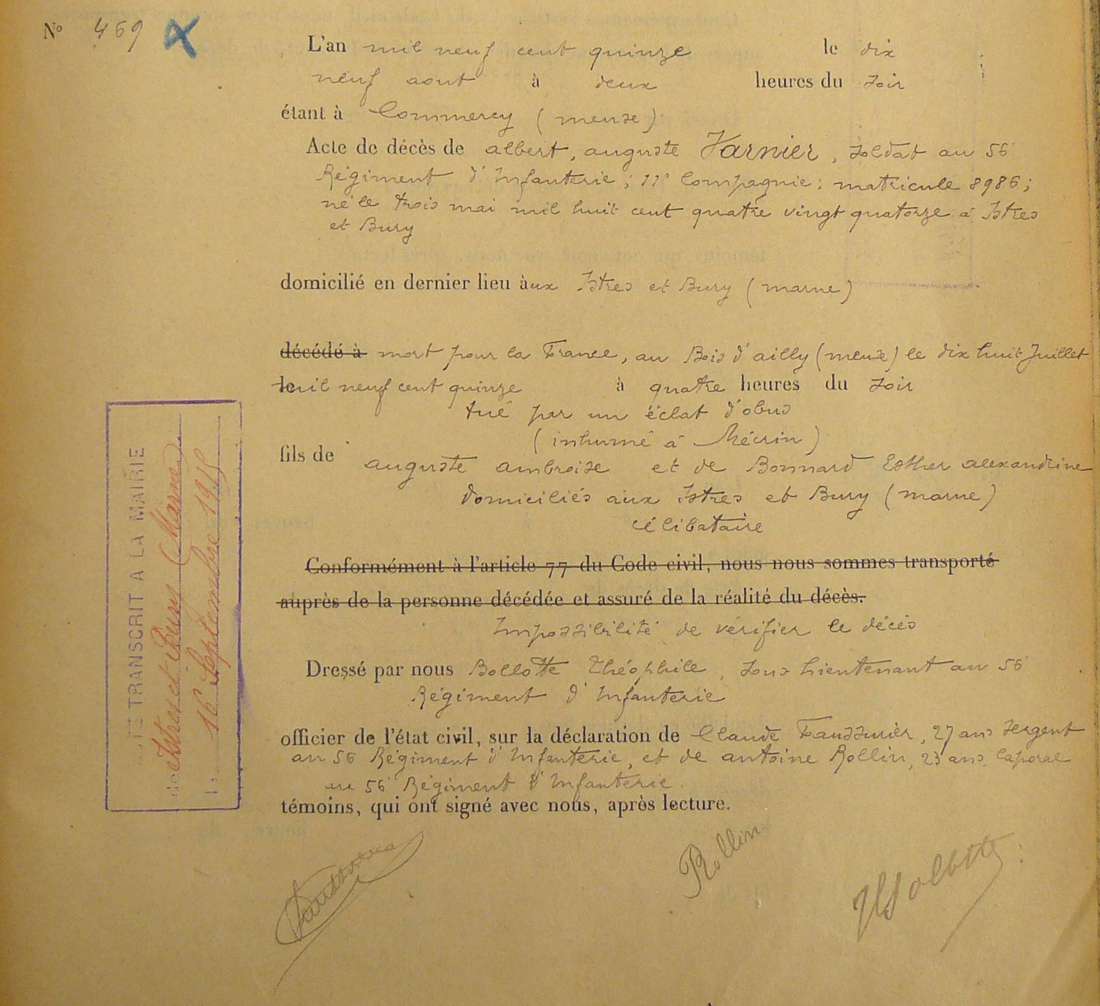 No 469
L'an mil neuf cent quinze le dix
neuf aout à deux heures du soir
étant à Commercy (meuse)
Acte de décès de albert, auguste Varnier, soldat au 56
Régiment d'Infanterie; 11e Compagnie; matricule 8986;
né le trois mai mil huit cent quatre vingt quatorze à Istres
et Bury
domicilié en dernier lieu àux Istres et Bury (marne)
décédé à mort pour la France, au Bois d'ailly (meuse) le dix huit Juillet
le mil neuf cent quinze à quatre heures du soir
tué par un éclat d'obus
(inhumé à Mécrin)
fils de auguste ambroise et de Bonnard Esther alexandrine
domiciliés aux Istres et Bury (marne)
célibataire
Conformément à l'article 77 du Code civil, nous nous sommes transporté
auprès de la personne décédée et assuré de la réalité du décès.
Impossibilité de vérifier le décès
Dressé par nous Bollotte Théophile, sous Lieutenant au 56
Régiment d'Infanterie
officier de l'état civil, sur la déclaration de Claude Faussurier, 27 ans sergent
au 56 Régiment d'Infanterie, et de antoine Rollin, 23 ans, Caporal
au 56 Régiment d'Infanterie.
témoins, qui ont signé avec nous, après lecture.
Rollin
TRANSCRIT A LA MAIRIE
de Istres et Bury (Marne)
16 Septembre 1915